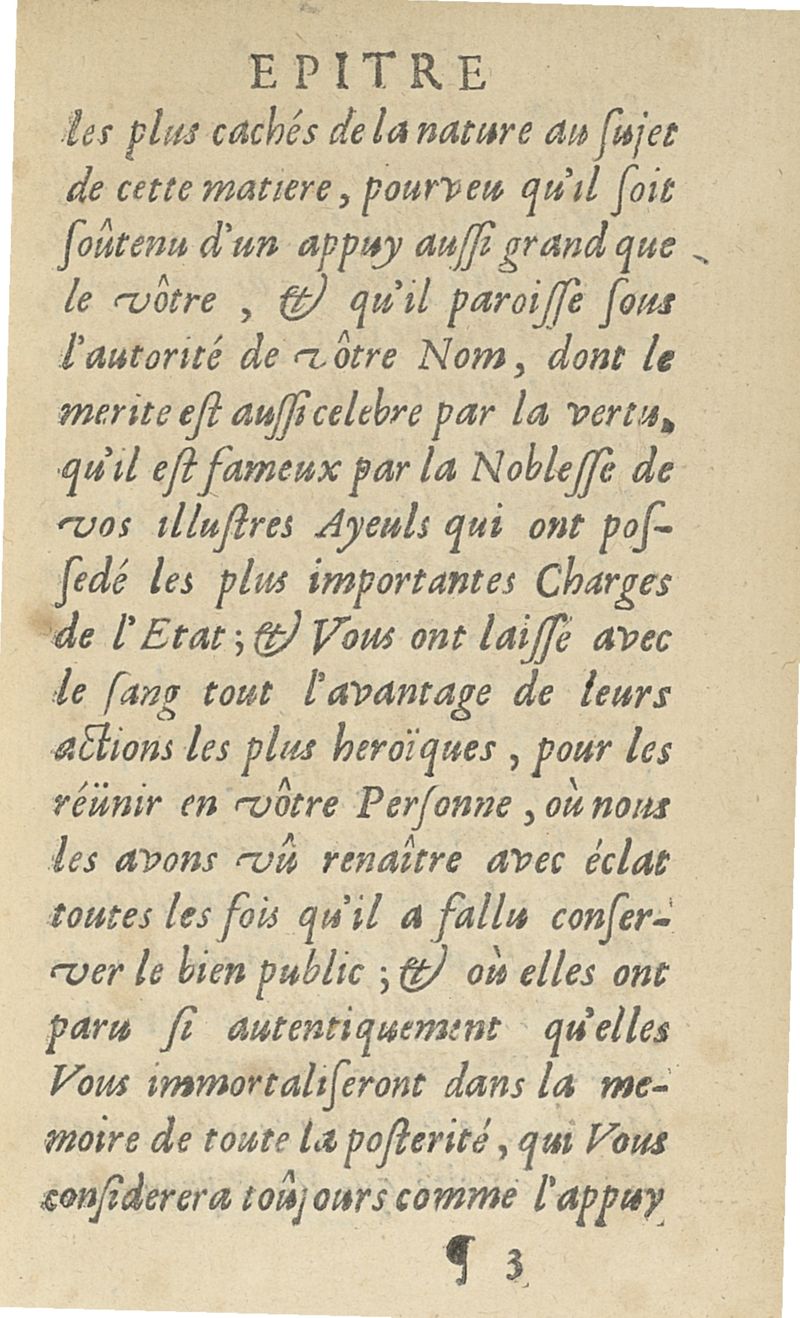 EPITRE
les plus cachés de la nature au ſujet
de cette matiere, pourveu qu'il ſoit
ſoûtenu d'un appuy auſſi grand que
le vôtre, & qu'il paroiſſe ſous
l'autorité de vôtre Nom, dont le
merite eſt auſſi celebre par la vertu,
qu'il eſt fameux par la Nobleſſe de
vos illuſtres Ayeuls qui ont poſ-
ſedé les plus importantes Charges
de l'Etat; & Vous ont laiſſé avec
le ſang tout l'avantage de leurs
actions les plus heroïques, pour les
réünir en vôtre Perſonne, où nous
les avons vû renaître avec éclat
toutes les fois qu'il a fallu conſer-
ver le bien public; & où elles ont
paru ſi autentiquement qu'elles
Vous immortaliſeront dans la me-
moire de toute la poſterité, qui Vous
conſiderera toûjours comme l'appuy
¶ 3